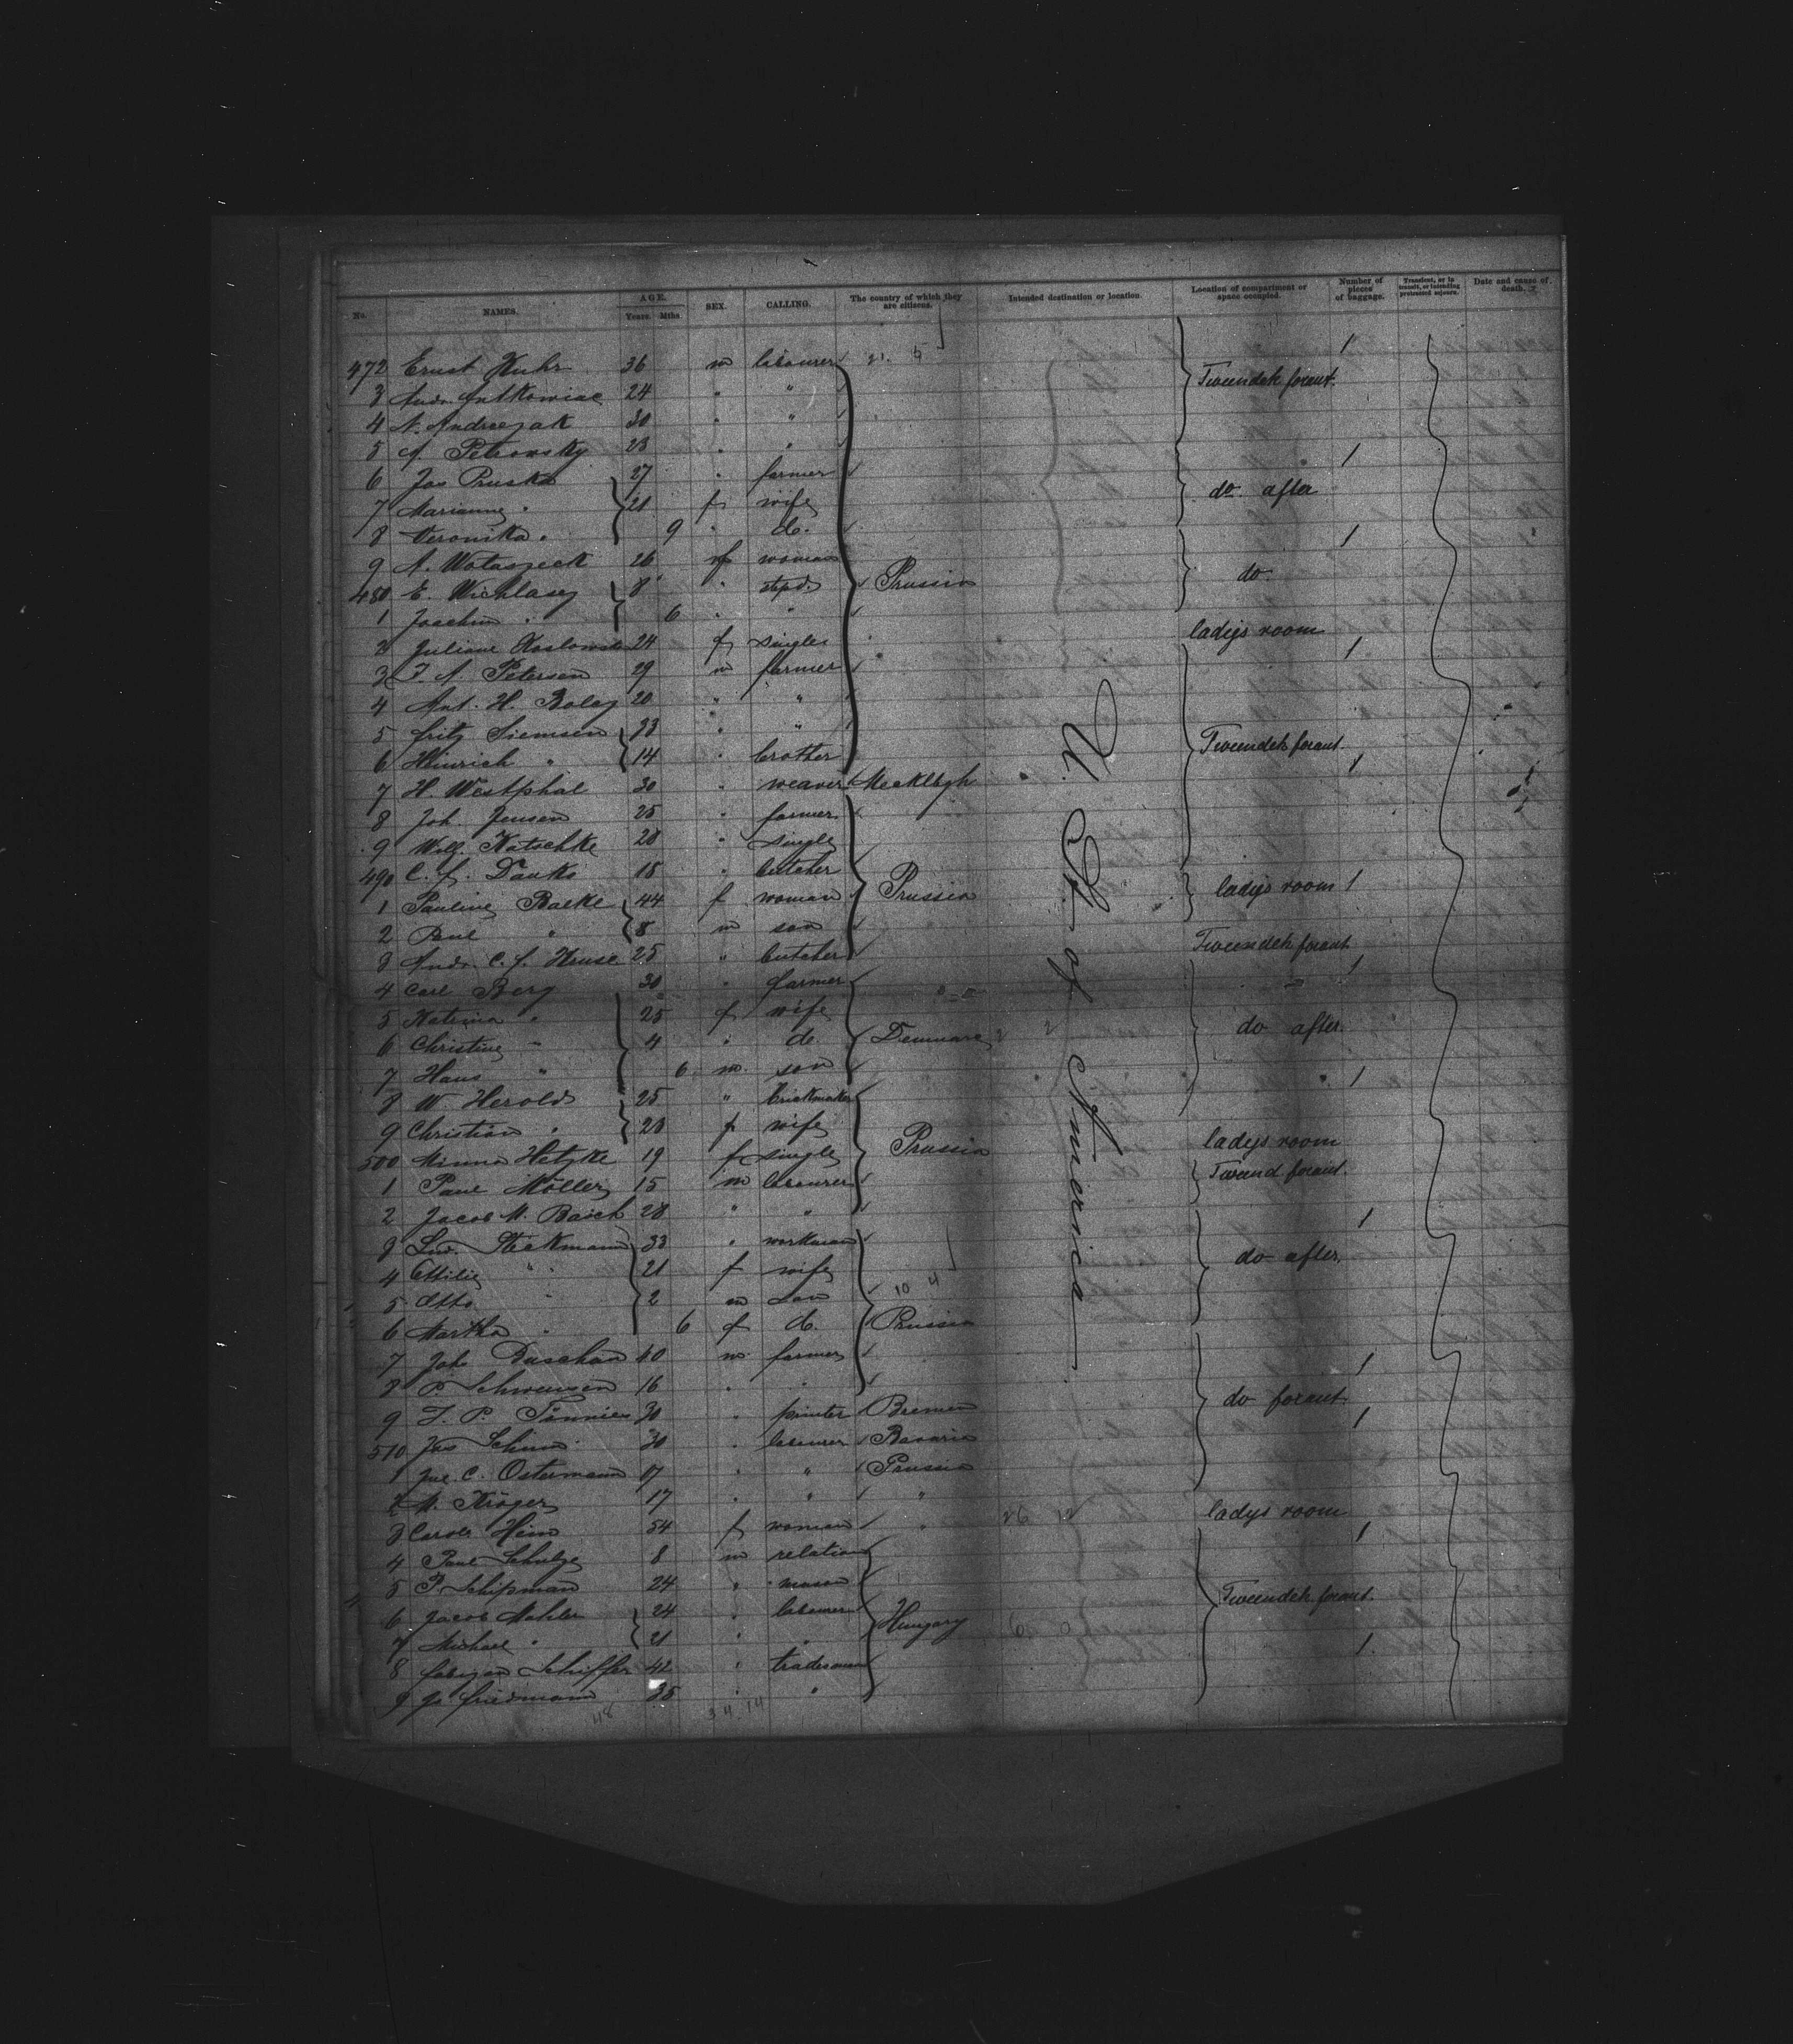 No. NAMES. AGE. Years. Mths. SEX. CALLING. The country of which they are citizens. Intended destination or location. Location of compartment or space occupied. Number of pieces of baggage. Transient, or in transit, or intending protracted sojourn. Date and cause of death.
472 Ernst Kuhr 36 m labourer 21. 5 1
3 Andr. Antkowiac 24 " " Tweendeck foraut.
4 N. Andreejak 30 " "
5 A. Petrowsky 23 " " 1
6 Jos Pruska 27 " farmer
7 Marianne " 21 f wife do after
8 Veronika " 9 " do. 1
9 A. Wataszeck 26 f woman
480 E. Wichlasy 8 " stepd. Prussia do.
1 Joachim " 6 " "
2 Juliane Koslowska 24 f single ladys room
3 F. A. Petersen 29 m farmer 1
4 Ant. H. Boley 20 " "
5 Fritz Siemsen 23 " "
6 Heinrich " 14 " brother Tweendeck foraut.
7 H. Westphal 30 " weaver Mecklbgh 1
8 Joh. Jensen 25 " farmer
9 Wilh. Katschke 28 " single
490 C. F. Danks 18 " butcher
1 Pauline Baeke 44 f woman Prussia ladys room 1
2 Paul " 8 m son
3 Andr. C. F. Kruse 25 " butcher Tweendeck foraut
4 Carl Berg 30 " farmer 1
5 Katrina " 25 f wife
6 Christine " 4 " do Denmark 2 2 do after
7 Hans " 6 m son 1
8 W Herold 25 " brickmaker
9 Christian " 28 f wife
500 Minna Hetzke 19 f single Prussia ladys room
1 Paul Möller 15 m labourer Tweend foraut.
2 Jacob M. Baich 28 " " 1
3 Lud. Steckmann 33 " workman
4 Ottilie " 21 f wife do after.
5 Otto " 2 m son 10 4
6 Martha " 6 f do. Prussia
7 Joh Duschan 40 m farmer 1
8 P. Schwensen 16 " "
9 F. P. Tönnies 30 " painter Bremen do foraut.
510 Jos Schun 30 " labourer Bavaria 1
1 Jul. C. Ostermann 17 " " Prussia
2 M. Kröger 17 " " "
3 Carol Hein 54 f woman " 26 12 ladys room
4 Paul Schulze 8 m relation 1
5 P. Schipman 24 " mason
6 Jacob Mahler 24 " labourer Tweendeck foraut.
7 Michael " 21 " " Hungary 6 0
8 Schiffer 42 " tradesman 1
9 Jo. Friedmann 35 " "
48 34 14
U. St. of America